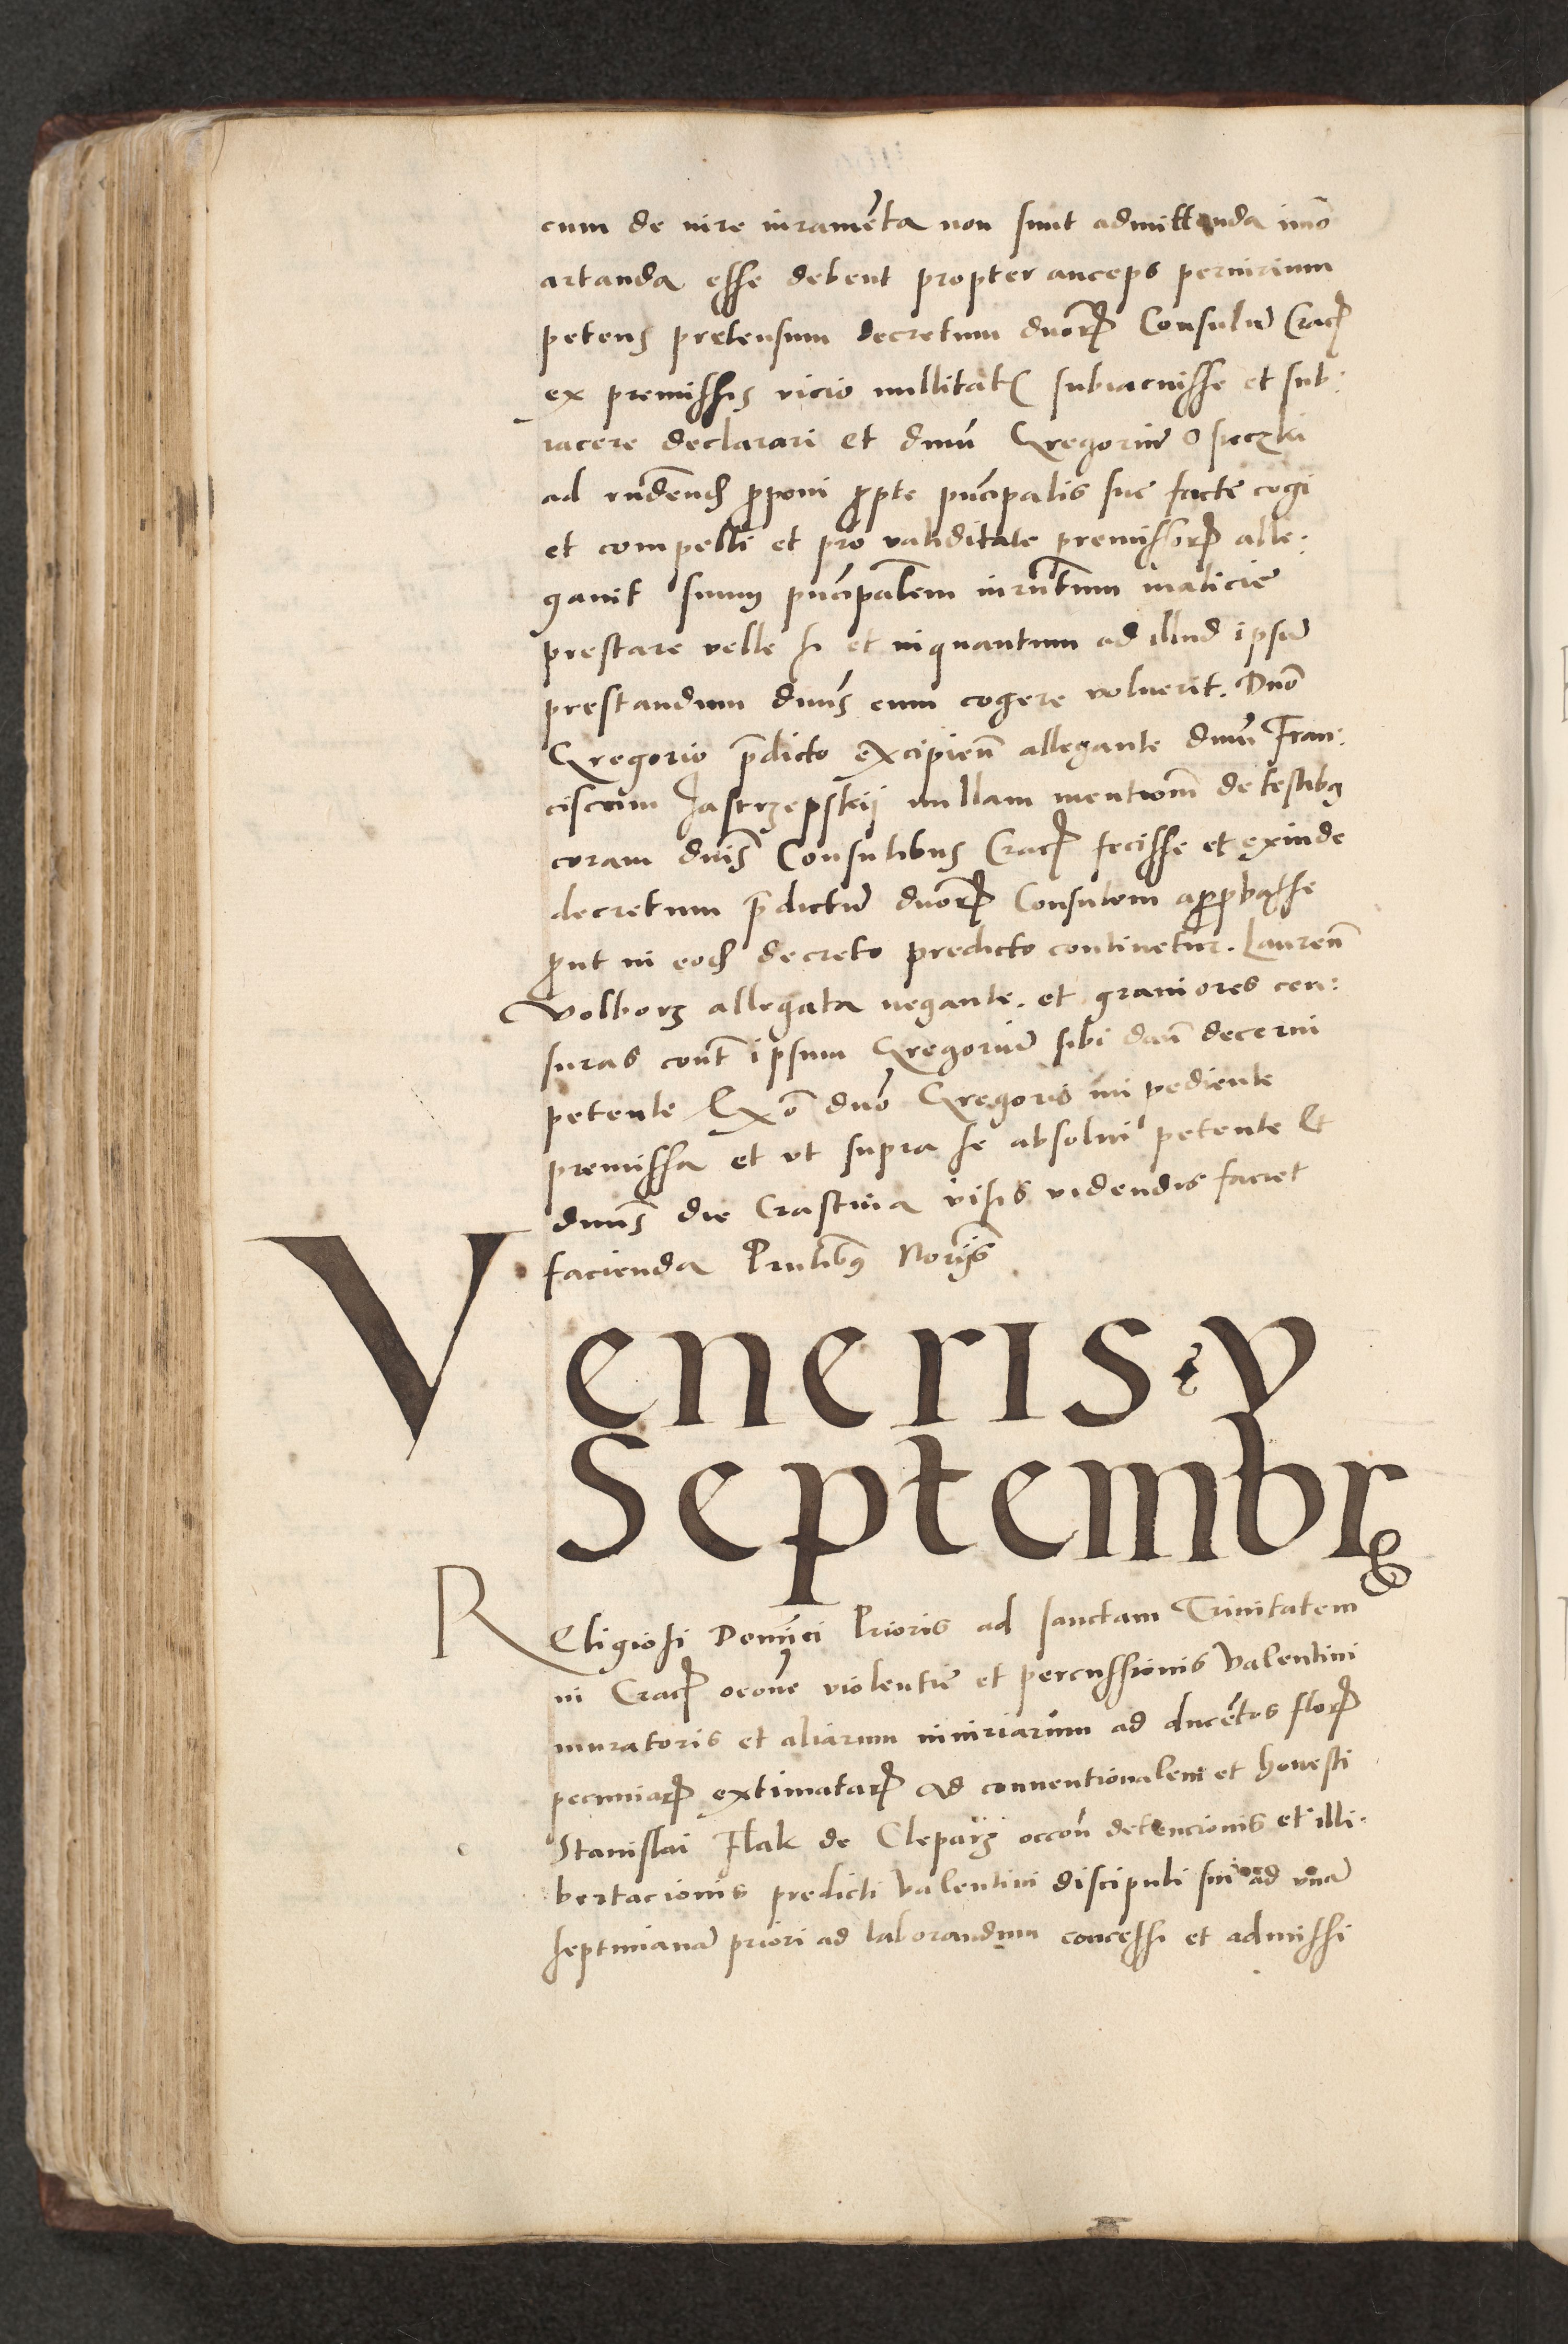 cum de iure iuramẽta non sunt admittenda imo
artanda esse debent propter anceps periurium
petens pretensum decretum dnorꝝ Consulũ Cracꝭ
ex premissis vicio nullitatꝭ subiacuisse et sub:
iacere declarari et dnũ Gregoriũ Osieczki
ad rñdendꝭ ꝓponi ꝓpte pñcipalis sue facte cogi
et compelli et pro validitate premissorꝝ alle:
gavit suum pñcipalem iurñtum malicie
prestare velle si et inquantum ad illud ipsũ
prestandum dnus eum cogere voluerit. Dno
Gregorio p̃dicto excipieñ allegante dnũ Fran:
ciscum Jastrzepskij nullam mentionẽ de testibꝫ
coram dnis Consulibus Cracꝭ fecisse et exinde
decretum p̃dictũ dnorꝝ Consulem apꝓbasse
ꝓut in eodꝭ decreto predicto continetur. Laureñ
Volborz allegata negante. et graviores cen:
suras cont ipsum Gregoriũ sibi dari decerni
petente Exo dno Gregorio impediente
premissa et vt supra se absolvi petente Et
dnus die Crastina visis videndis faciet
facienda Pntibꝫ Norijs
Veneris v
Septembrꝭ
REligiosi Dominici Prioris ad sanctam Trinitatem
in Cracꝭ occone violentie et percussionis Valentini
muratoris et aliarum iniuriarum ad ducẽtos florꝭ
pecuniarꝝ extimatarꝝ ad conventionalem et honesti
Stanislai Flak de Cleparz occoñ detencionis et illi:
bertacionis predicti Valentini discipuli sui ad vnã
septimanã priori ad laborandum concessi et admissi